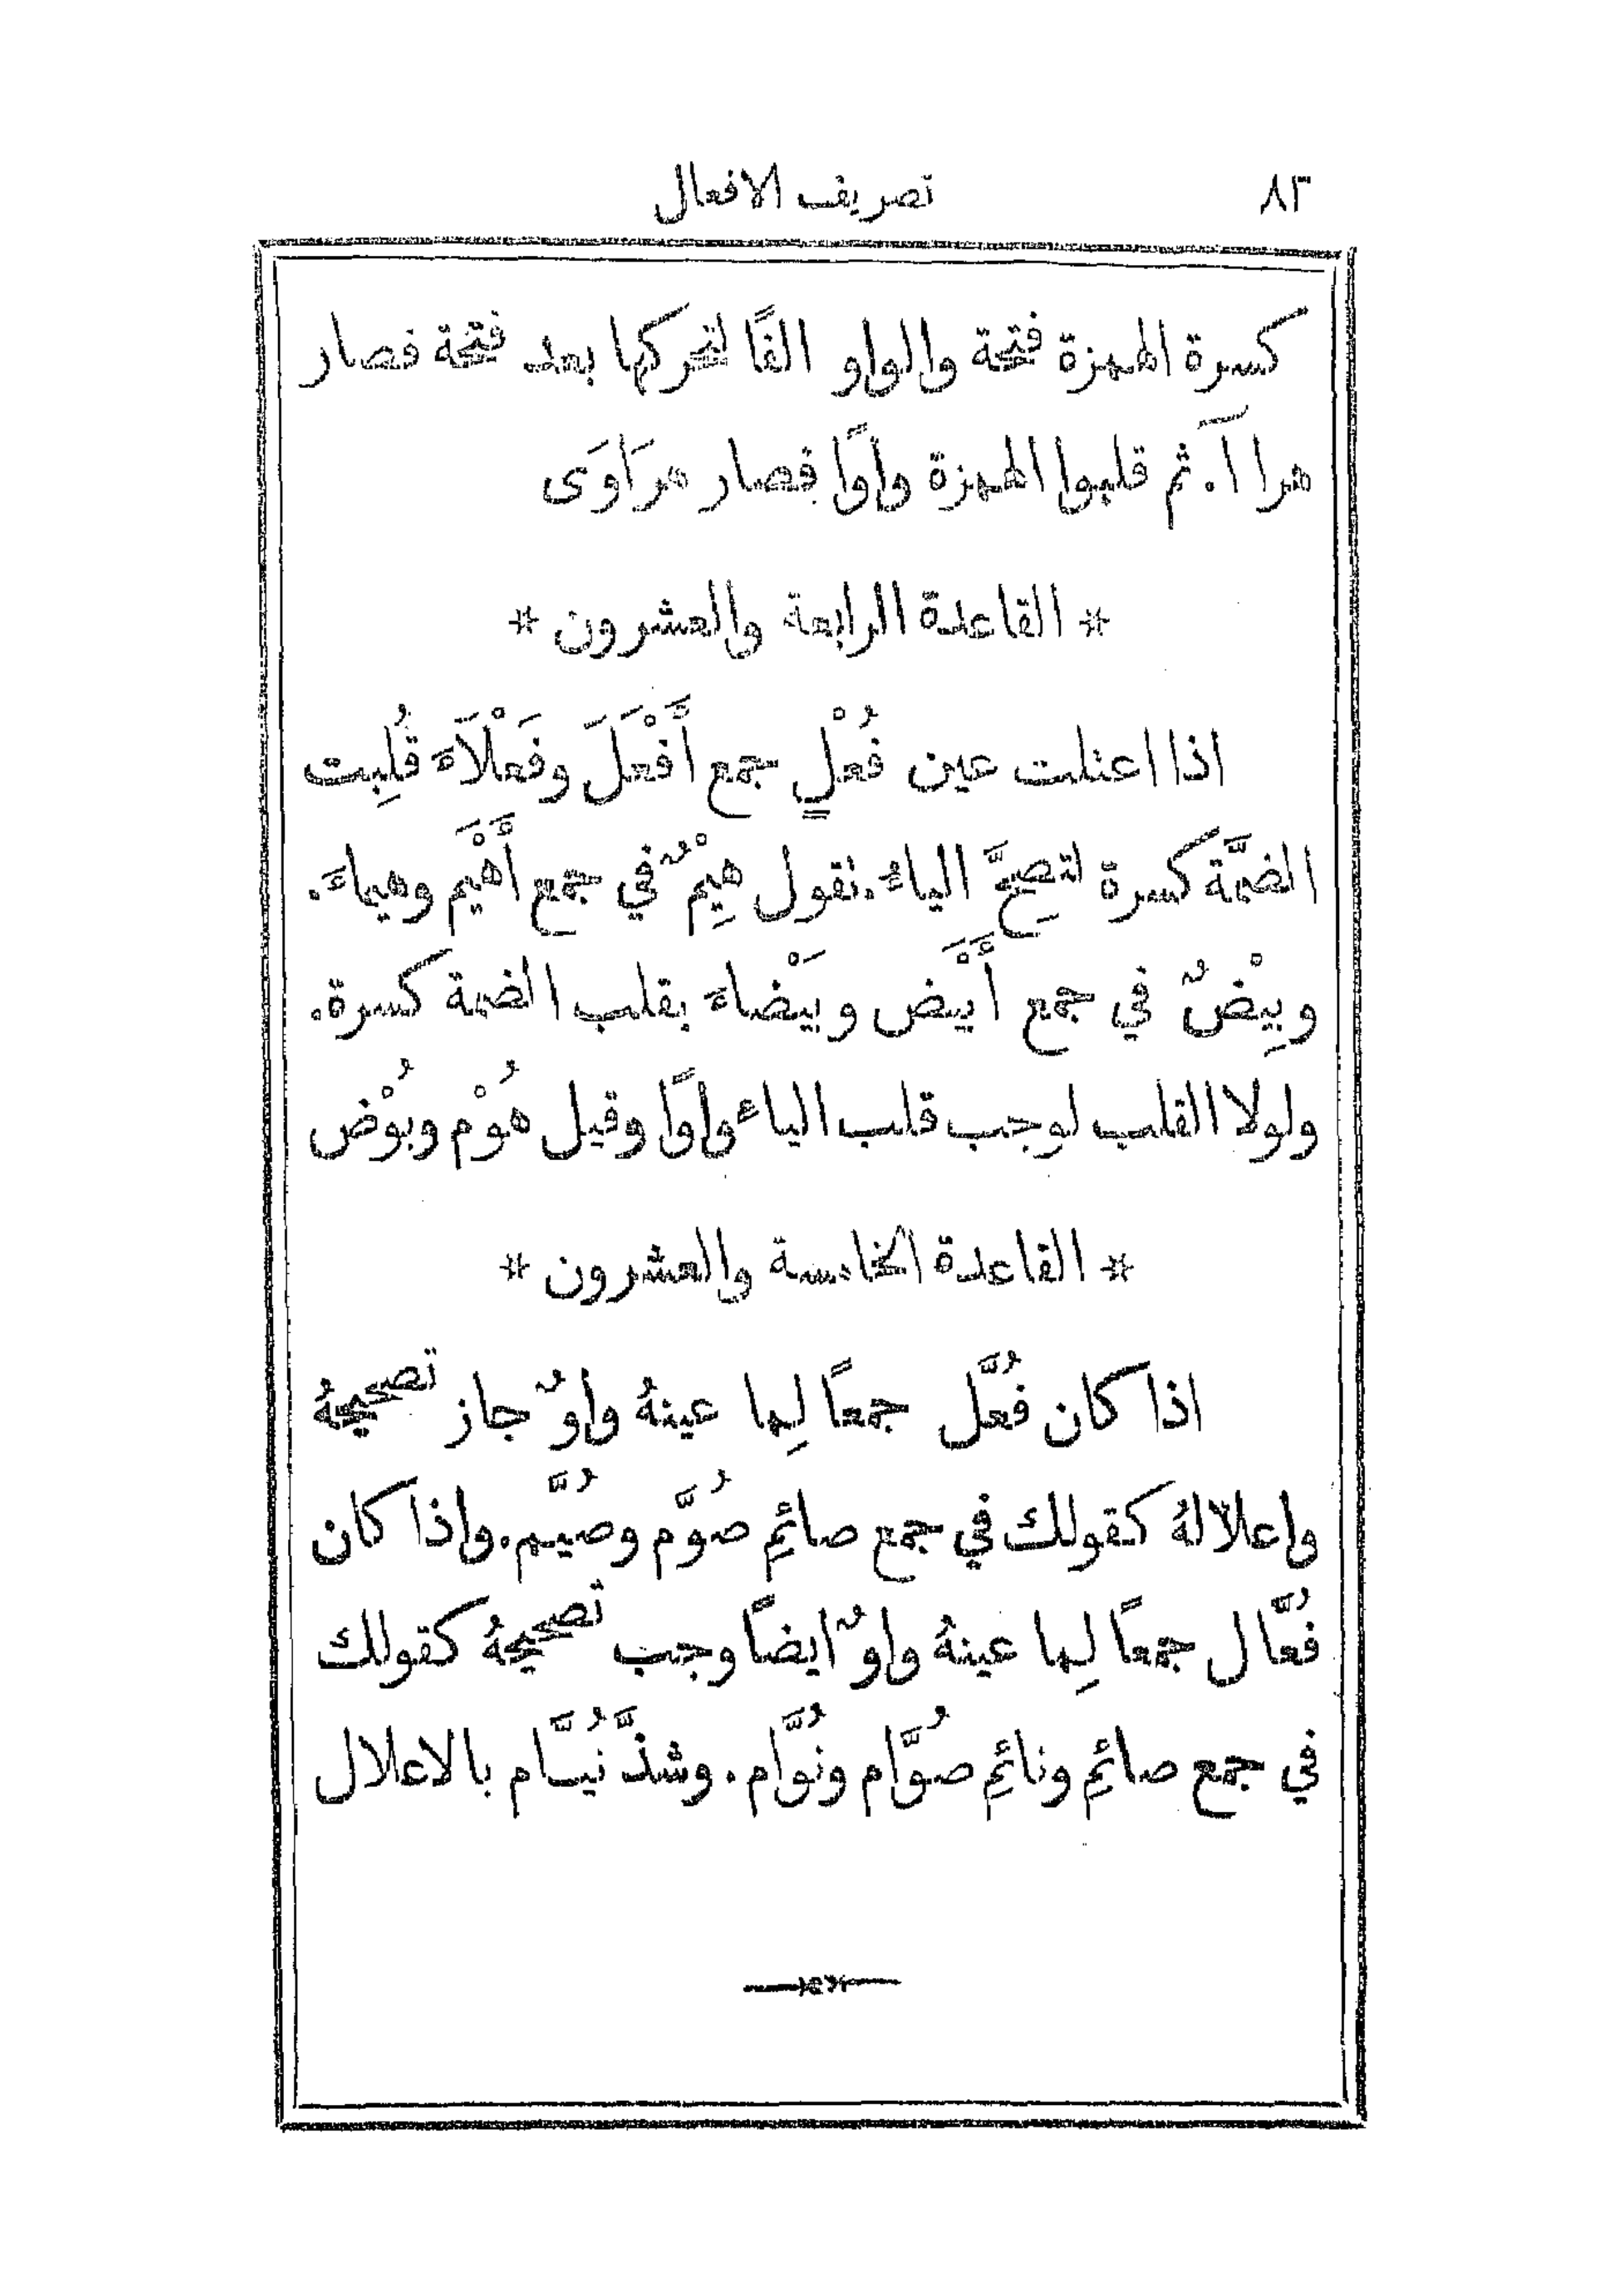 ٨٢ تصريف الافعال
كسرة الهمزة فتحة والواو الفًا لتحركها بعد فتحة فصار
هرا اَآ. ثم قلبوا الهمزة واوًا فصار هرَاوَى
* القاعدة الرابعة والعشرون *
اذا اعتلت عين فُعْلٍ جمع أَفْعَلَ وفَعْلَآءَ قُلِبت
الضمَّة كسرة لتصِحَّ الياءُ. تقول هِيْمٌ في جمع أَهْيَم وهيماءَ.
وبِيْضٌ في جمع أَبْيَض وبَيْضاءَ بقلب الضمة كسرة.
ولولا القلب لوجب قلب الياء واوًا وقيل هُوْم وبُوْض
* القاعدة الخامسة والعشرون *
اذا كان فُعَّل جمعًا لِما عينهُ واوٌ جاز تصحيحهُ
واعلالهُ كقولك في جمع صائمِ صُوَّم وصُيَّم. واذا كان
فُعَّال جمعًا لِما عينهُ واوٌ ايضًا وجب تصحيحهُ كقولك
في جمع صائمِ ونائمِ صُوَّام ونُوَّام. وشذَّ نُيَّام بالاعلال